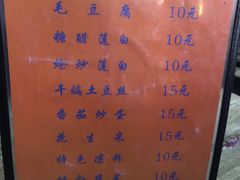 毛豆腐 10元
糖醋莲白 10元
炝炒莲白 10元
干煸土豆丝 15元
番茄炒蛋 15元
花生米 15元
特色凉粉 10元